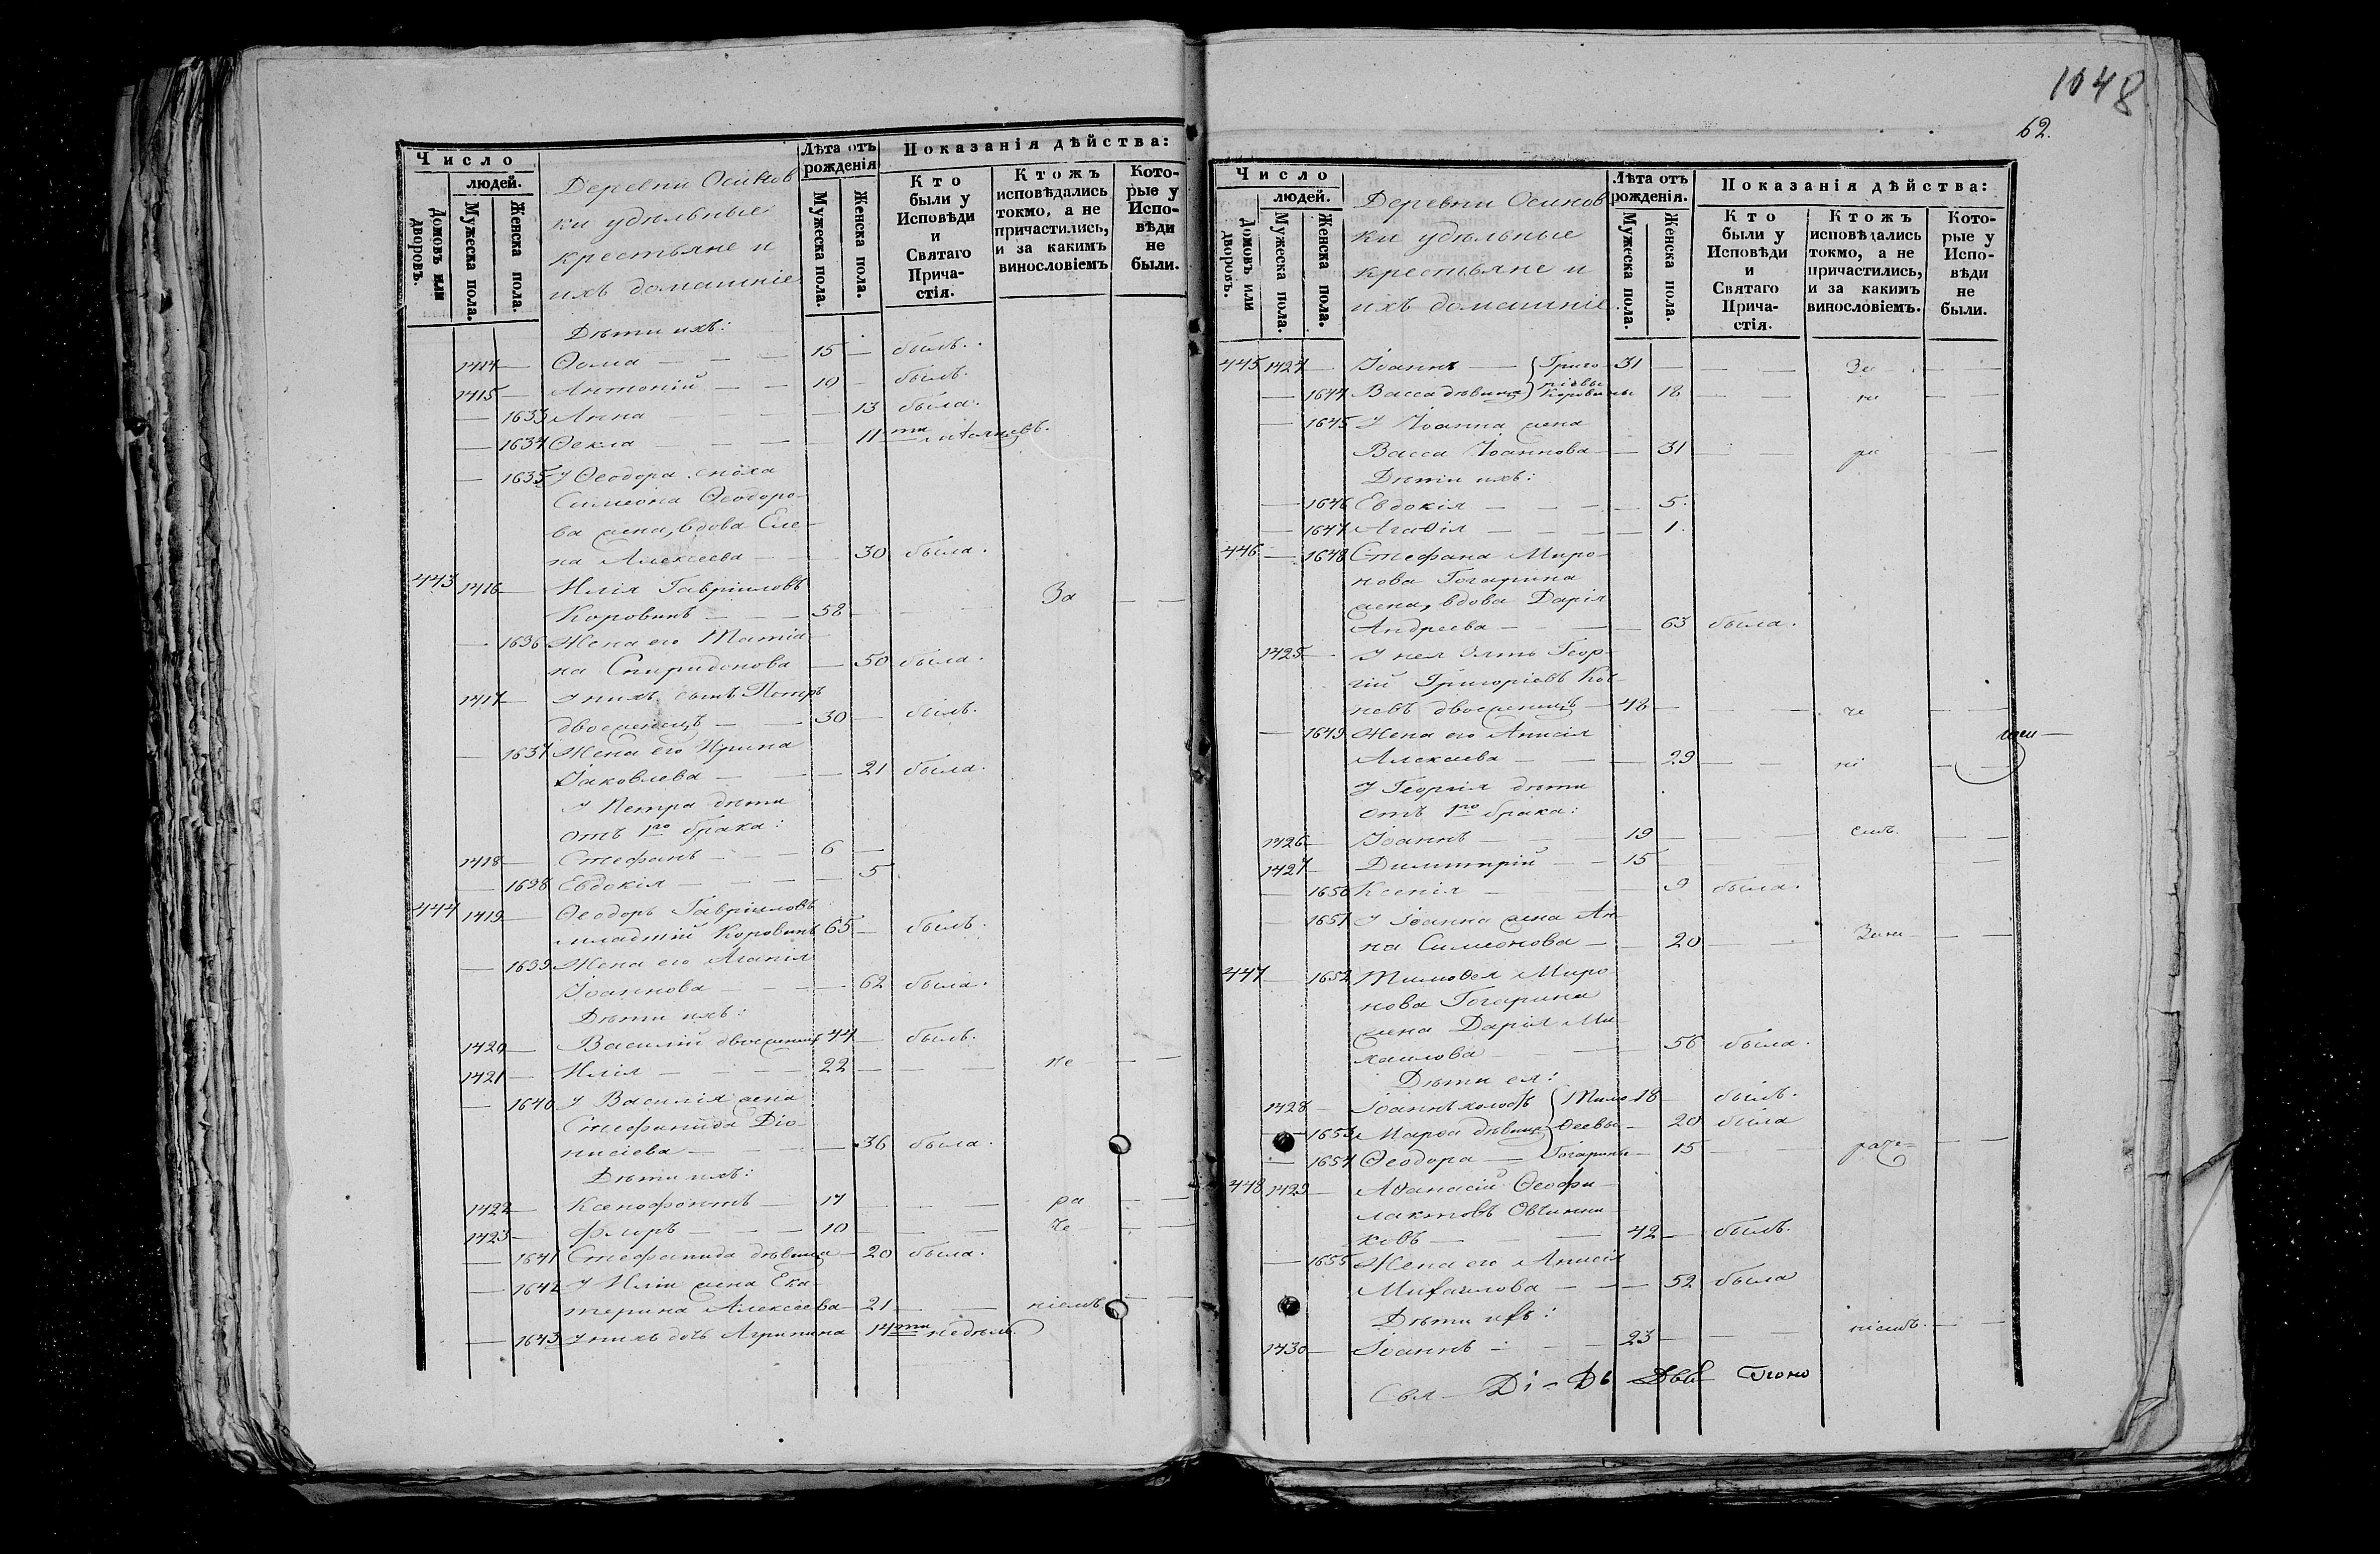 1048
62.
Число
людей.
Домовъ или дворовъ.
Мужеска пола.
Женска пола.
Деревни Осинов
ки удѣльные
крестьяне и
ихъ домашніе
Лѣта отъ рожденія
Мужеска пола.
Женска пола.
Показанія дѣйства:
Кто были у Исповѣди и Святаго Причастія.
Ктожъ исповѣдались токмо, а не причастились, и за какимъ винословіемъ
Которые у Исповѣди не были.
Дѣти ихъ:
1414 — Ѳома — — — 15 — былъ.
1415 — Антоній — — 10 — былъ.
— 1633 Анна — — — 13 была.
— 1634 Ѳекла — — — 11
— 1635 У Ѳеодора сноха
Симеона Ѳеодоро-
ва жена, вдова Еле-
на Алексеева — — 30 была.
443 1416 — Илія Гавріиловъ
Коровинъ — — 58 — — — За — —
— 1636 Жена его Татіа-
на Спиридонова — 50 была.
1417 — У нихъ сынъ Петръ
двоеженецъ — — 30 — былъ.
— 1637 Жена его Ирина
Іаковлева — — — 21 была.
У Петра дѣти
отъ 1го брака:
1418 — Стефанъ — — 6 —
— 1638 Евдокія — — — 5
444 1419 — Ѳеодоръ Гавріиловъ
младшій Коровинъ 65 — былъ.
— 1639 Жена его Агапія
Іоаннова — — — 62 была.
Дѣти ихъ:
1420 — Василій двоеженецъ 44 — былъ.
1421 — Илія — — — 22 — — не — —
— 1640 У Василія жена
Стефанида Діо-
нисіева — — — 36 была.
Дѣти ихъ:
1422 — Ксенофонтъ — 17 — — — ра — —
1423 — Флоръ — — 10 — — че — —
— 1641 Стефанида дѣвица — 20 была.
— 1642 У Иліи жена Ека-
терина Алексеева — 21 — — ніемъ — —
— 1643 У нихъ дочь Агрипина 14ти недѣль.
Число
людей.
Домовъ или дворовъ.
Мужеска пола.
Женска пола.
Деревни Осинов
ки удѣльные
крестьяне и
ихъ домашніе.
Лѣта отъ рожденія.
Мужеска пола.
Женска пола.
Показанія дѣйства:
Кто были у Исповѣди и Святаго Причастія.
Ктожъ исповѣдались токмо, а не причастились, и за какимъ винословіемъ.
Которые у Исповѣди не были.
445 1424 — Іоаннъ — Григо- 31 — — — За — —
ріевы
— 1644 Васса дѣвица Коровины 18 — — не — —
— 1645 У Іоанна жена
Васса Іоаннова — — 31 — — ра — —
Дѣти ихъ:
— 1646 Евдокія — — — — 5.
— 1647 Агаѳія — — — — 1.
446 — 1648 Стефана Миро-
нова Гогарина
жена, вдова Дарія
Андреева — — — — 63 была.
1425 — У нея зять Геор-
гій Григоріевъ
двоеженецъ — 42 — — — че — —
— 1649 Жена его Анисія
Алексеева — — — 29 — — ні — —
У Георгія дѣти
отъ 1го брака:
1426 — Іоаннъ — — 19 — — емъ. — —
1427 — Димитрій — — 15 — — — —
— 1650 Ксенія — — — 9 была.
— 1651 У Іоанна жена Ан-
на Симеонова — — 20 — — — —
447 — 1652 Тимоѳея Миро-
нова Гогарина
жена Дарія Ми-
хаилова — — 56 была.
Дѣти ея:
1428 — Іоаннъ холостъ Тимо- 18 — былъ.
— 1653 Марѳа дѣвица ѳеевы — 20 была
— 1654 Ѳеодора — Гогарины — 15 — — — —
448 1429 — Аѳанасій Ѳеофи-
лактовъ Овчинни-
ковъ — — — 42 — былъ.
— 1655 Жена его Анисія
Михаилова — — — 52 была
Дѣти ихъ:
1430 — Іоаннъ — — — 23 — — — ніемъ. — —